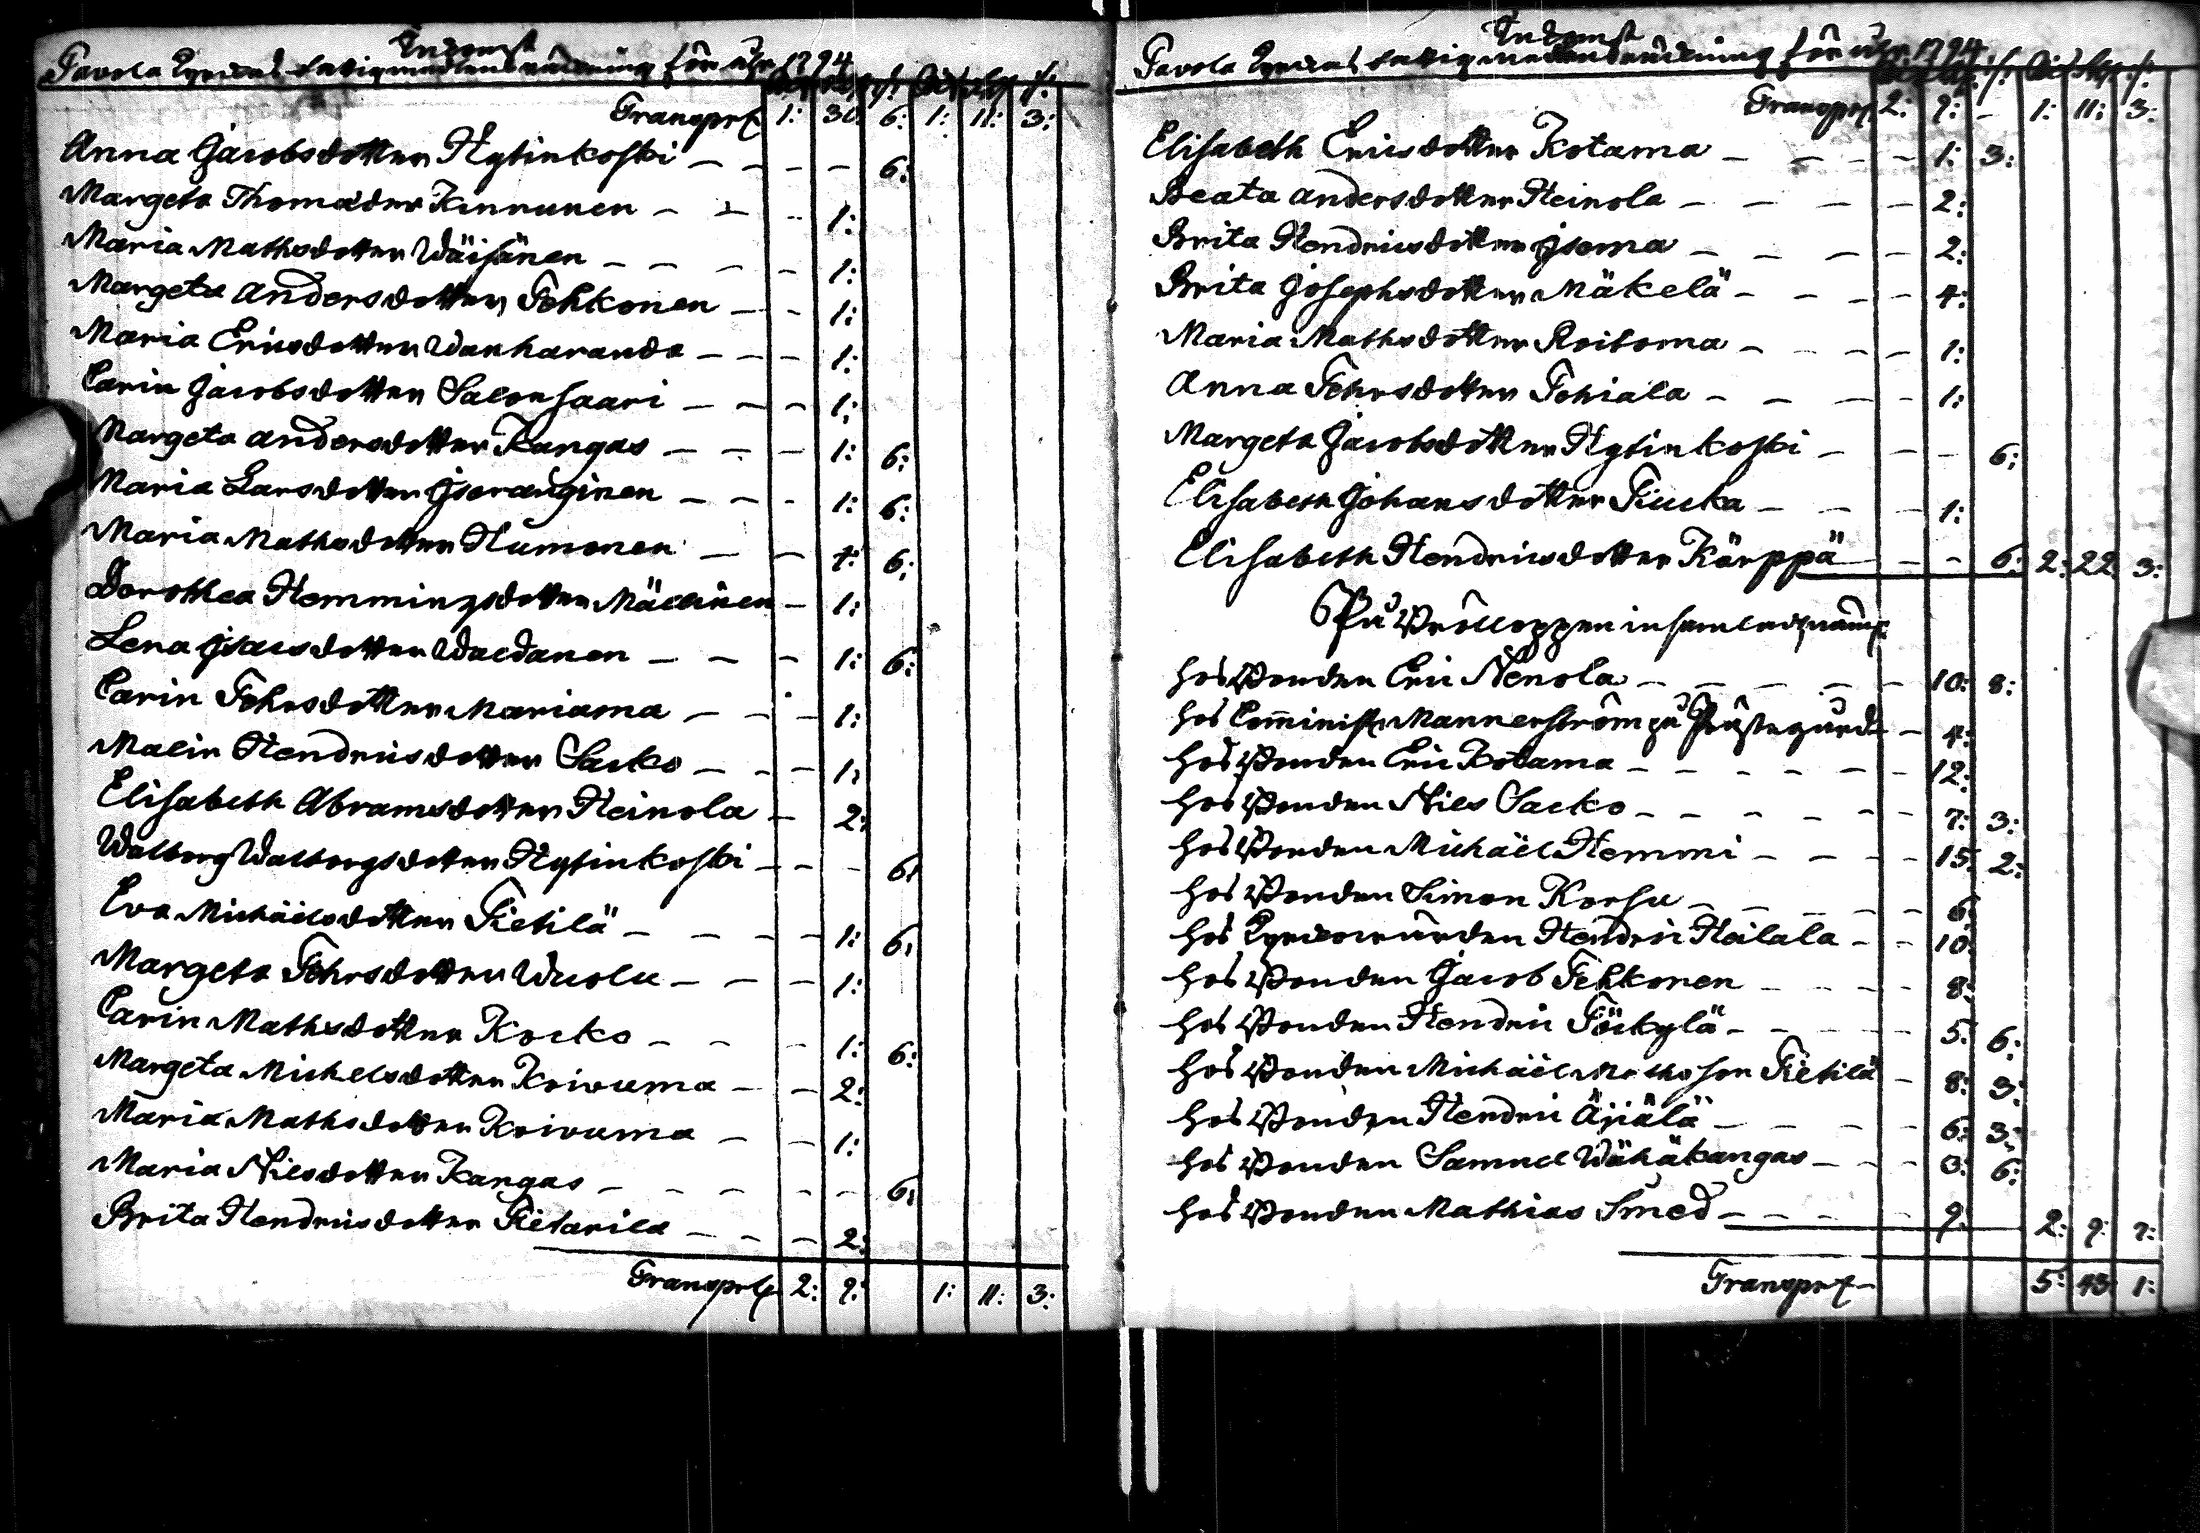 Inkomst
Pavola Kyrckas fattigmedlens räckning för åhr 1794
Rdr sk. rst. Rdr sk. r.
Transport 1: 30: 6: 1: 11: 3:
Anna Jacobsdotter Hytinkoski — — — — 6:
Margeta Thomædr Kinnunen — — — 1:
Maria Mathsdotter Wäisänen — — — — 1:
Margeta Andersdotter Pehkonen — — 1:
Maria Ericsdotter Wanharanda — — — 1:
Carin Jacobsdotter Salonsaari — — — 1:
Margeta Andersdotter Kangas — — — 1: 6:
Maria Larsdotter Iseranginen — — — 1: 6:
Maria Mathsdotter Humonen — — 4: 6:
Dorothea Hemmingsdotter Mällinen — 1:
Lena Isacsdotter Waldanen — — — 1: 6:
Carin Pehrsdotter Mariama — — 1:
Malin Hendricsdotter Sarko — — — 1:
Elisabeth Abramsdotter Heinola — 2:
Walborg Walborgsdotter Hytinkoski — — — 6:
Eva Michäelsdotter Pietilä — — — — 1: 6:
Margeta Pehrsdotter Wuolu — — — 1:
Carin Mathsdotter Kocko — — — 1: 6:
Margeta Michelsdotter Koivuma — — 2:
Maria Mathsdotter Koivuma — — 1:
Maria Nilsdotter Kangas — — — — — — 6:
Brita Hendricsdotter Pietarila — — — 2:
Transport 2: 9: 1: 11: 3:
Inkomst
Pavola Kyrckas fattigmedlens räckning för åhr 1794
Rdr sk. r. Rdr sk. r.
Transport 2: 9: — 1: 11: 3:
Elisabeth Ericsdotter Kotama — — — — 1: 3:
Beata Andersdotter Heinola — — — — 2:
Brita Hendricsdotter Isoma — — — — 2:
Brita Josephsdotter Mäkelä — — — — 4:
Maria Mathsdotter Roitoma — — — — 1:
Anna Pehrsdotter Pohiala — — — 1:
Margeta Jacobsdotter Hytinkoski — — — 6:
Elisabeth Johansdotter Kucka — — — 1:
Elisabeth Hendricsdotter Kärppä — — 6: 2: 22 3:
På Brölloppen insamlade
hos Bonden Eric Nenola — — — — — — 10: 8:
hos Comminist. Mannerström på Prästegården — 4:
hos Bonden Eric Kotama — — — — — — 12:
hos Bonden Nils Sarko — — — — — — 7: 3:
hos Bonden Michäel Hemmi — — — — 15: 2:
hos Bonden Simon Korsu — — — — — — 6
hos Kyrckovärden Hendric Heilala — — 10:
hos Bonden Jacob Pehkonen — — — — 8:
hos Bonden Hendric Pöckylä — — — — 5: 6:
hos Bonden Michäel Mathsson Pietilä — 8: 3:
hos Bonden Hendric Äijälä — — — — — 6: 3:
hos Bonden Samuel Wähäkangas — — — 3: 6:
hos Bonden Mathias Smed — — — — — 9: 2: 9: 7:
Transport — 5: 43 1: